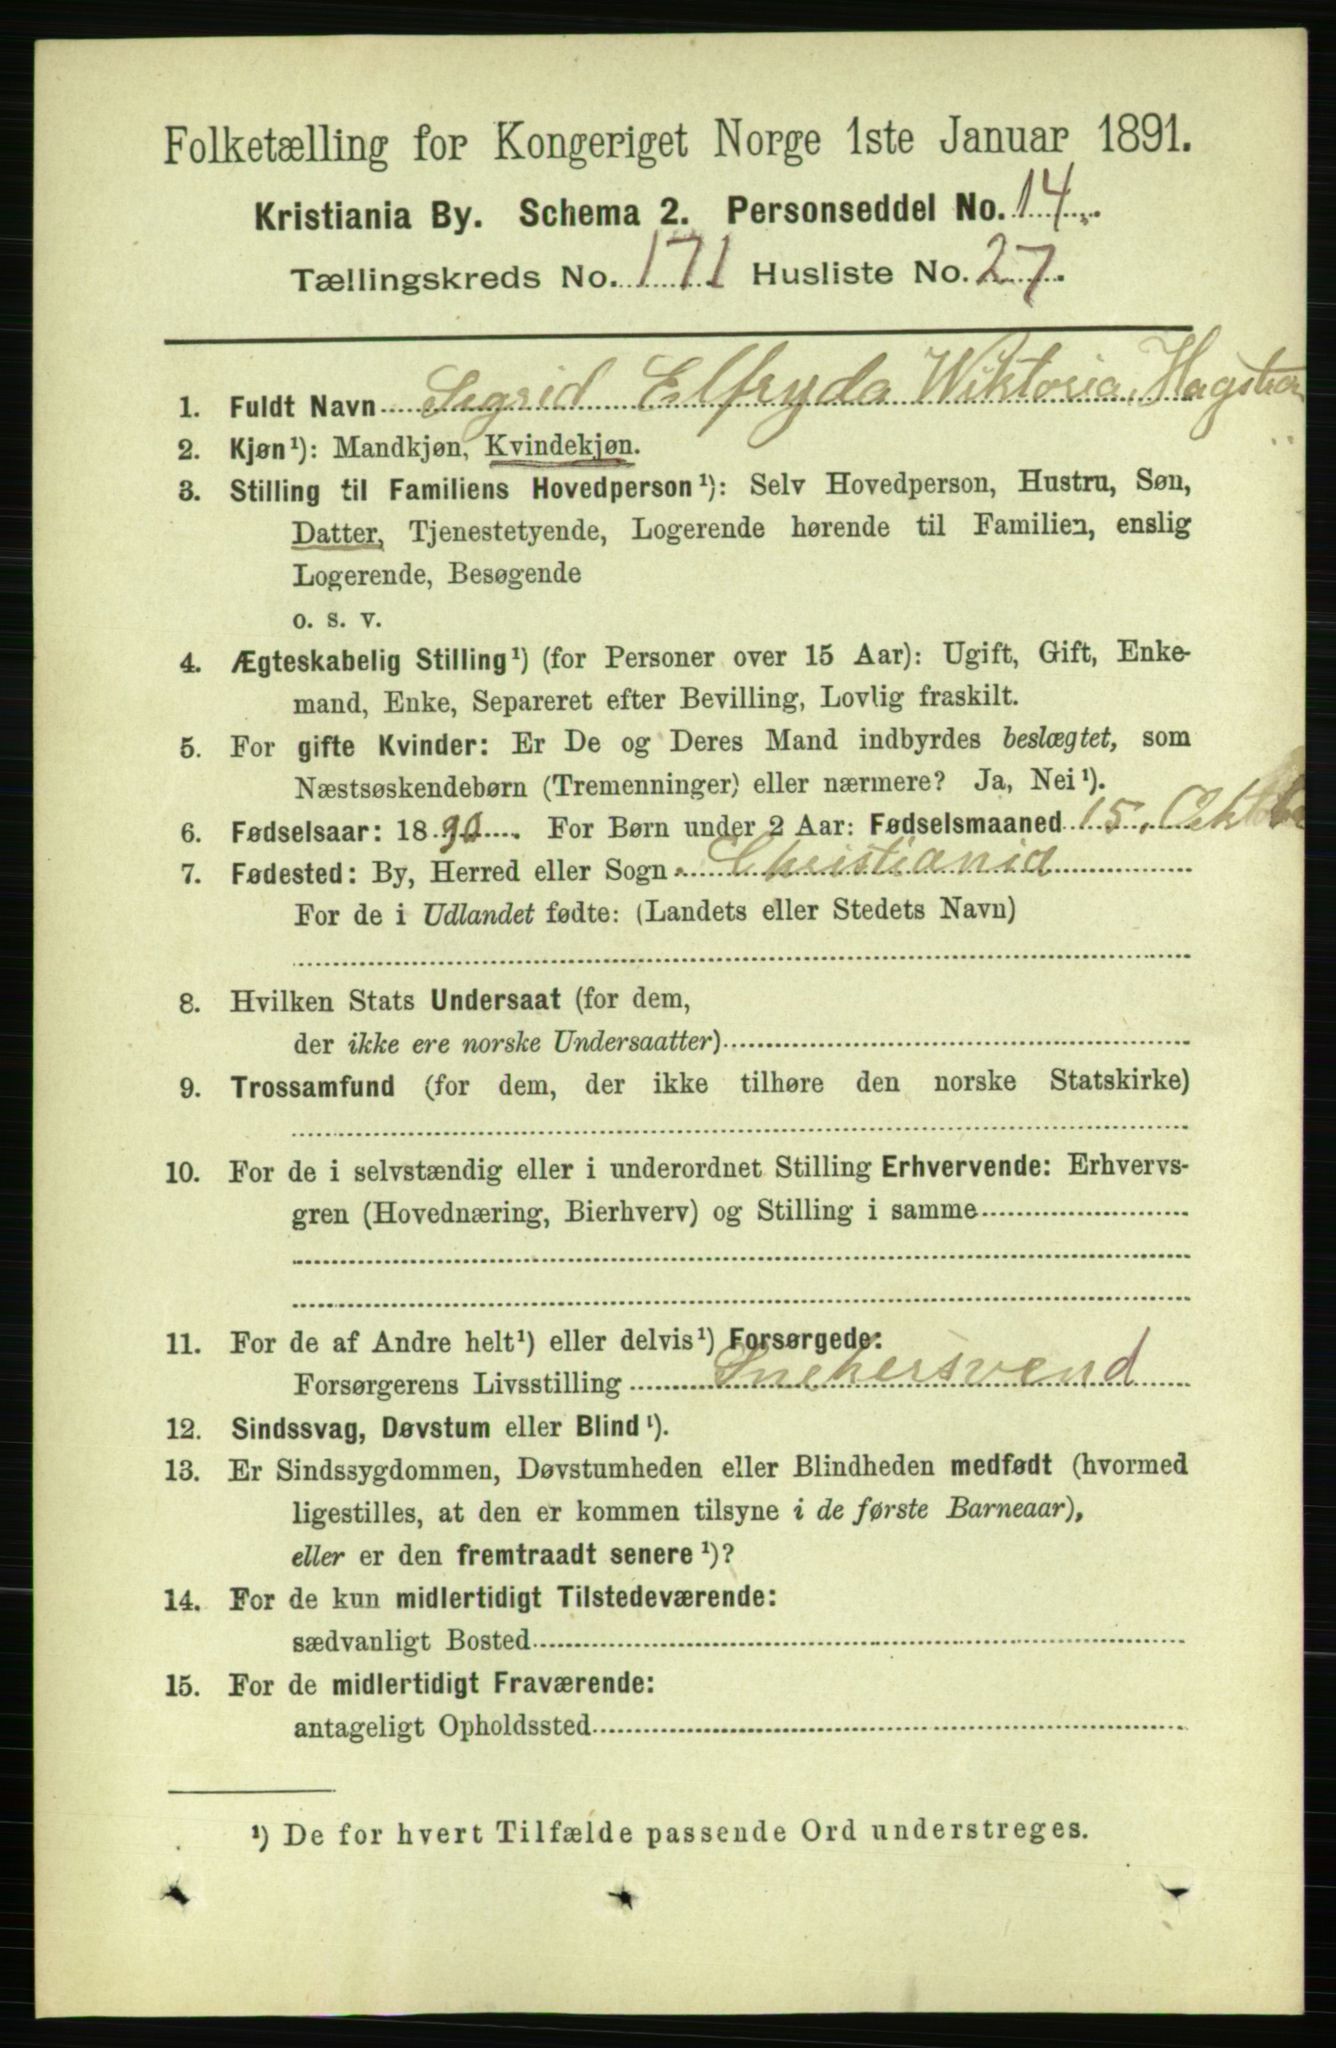 Folketælling for Kongeriget Norge 1ste Januar 1891.
Kristiania By. Schema 2. Personseddel No. 14
Tællingskreds No. 171 Husliste No. 27.
1. Fuldt Navn Sigrid Elfryda Wiktoria, Hagström
2. Kjøn¹): Mandkjøn, Kvindekjøn.
3. Stilling til Familiens Hovedperson¹): Selv Hovedperson, Hustru, Søn,
Datter, Tjenestetyende, Logerende hørende til Familien, enslig
Logerende, Besøgende
o. s. v.
4. Ægteskabelig Stilling¹) (for Personer over 15 Aar): Ugift, Gift, Enke-
mand, Enke, Separeret efter Bevilling, Lovlig fraskilt.
5. For gifte Kvinder: Er De og Deres Mand indbyrdes beslægtet, som
Næstsøskendebørn (Tremenninger) eller nærmere? Ja, Nei¹).
6. Fødselsaar: 1890. For Børn under 2 Aar: Fødselsmaaned 15, Oktobe
7. Fødested: By, Herred eller Sogn Christiania
For de i Udlandet fødte: (Landets eller Stedets Navn)
8. Hvilken Stats Undersaat (for dem,
der ikke ere norske Undersaatter)
9. Trossamfund (for dem, der ikke tilhøre den norske Statskirke)
10. For de i selvstændig eller i underordnet Stilling Erhvervende: Erhvervs-
gren (Hovednæring, Bierhverv) og Stilling i samme
11. For de af Andre helt¹) eller delvis¹) Forsørgede:
Forsørgerens Livsstilling Snekersvend
12. Sindssvag, Døvstum eller Blind¹).
13. Er Sindssygdommen, Døvstumheden eller Blindheden medfødt (hvormed
ligestilles, at den er kommen tilsyne i de første Barneaar),
eller er den fremtraadt senere¹)?
14. For de kun midlertidigt Tilstedeværende:
sædvanligt Bosted
15. For de midlertidigt Fraværende:
antageligt Opholdssted
¹) De for hvert Tilfælde passende Ord understreges.